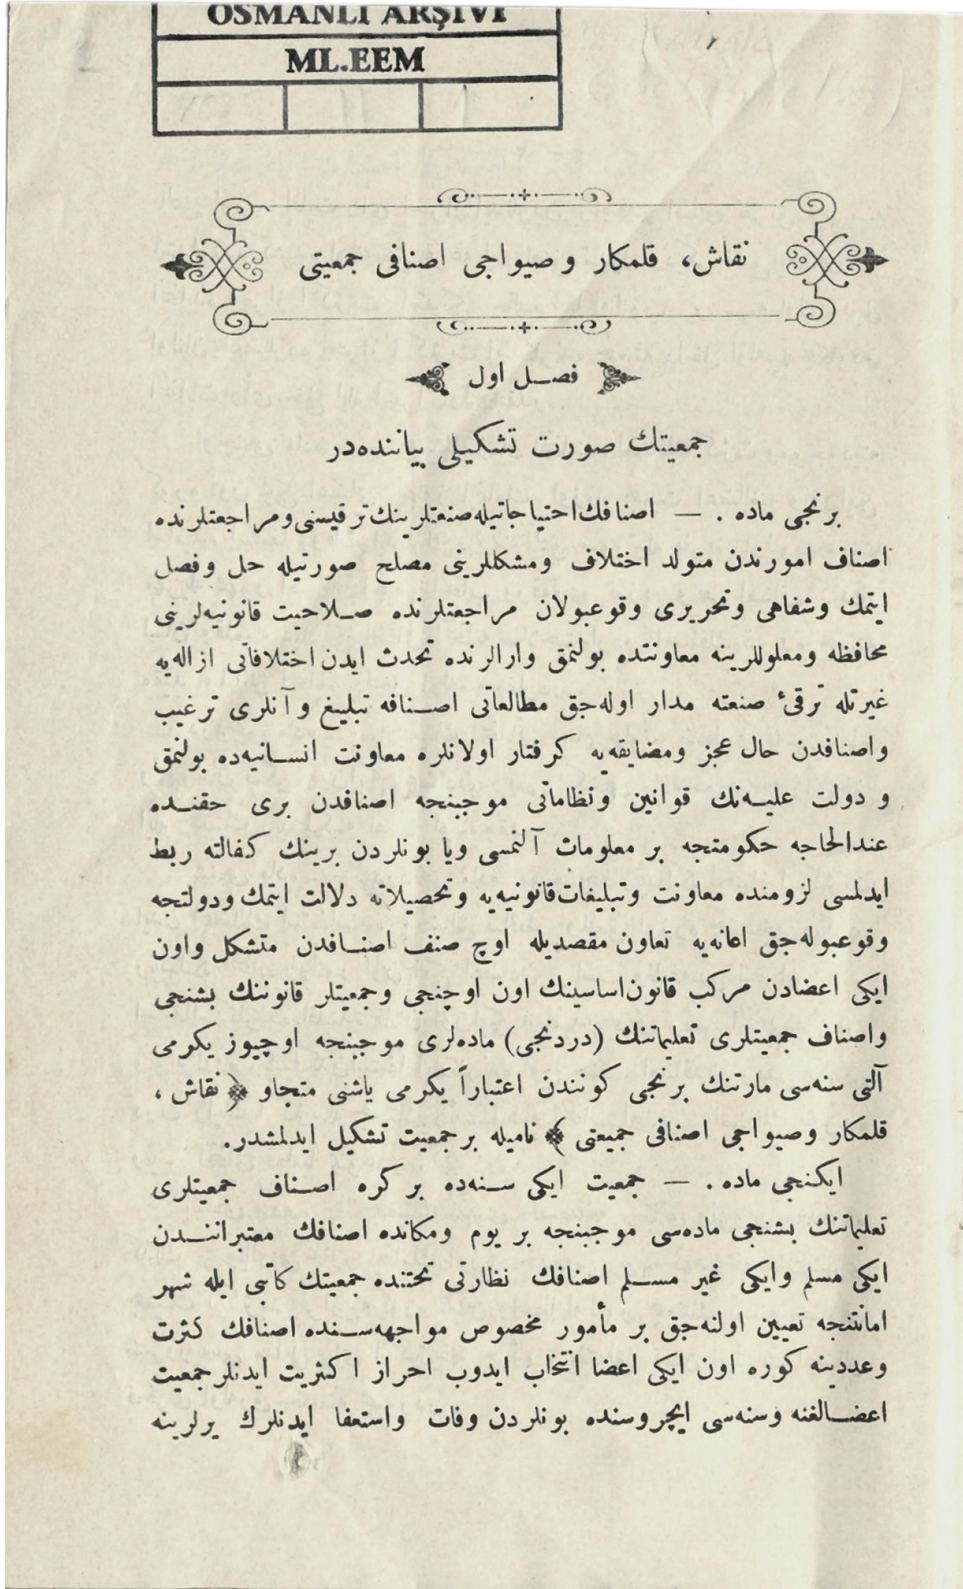 OSMANLI ARŞİVİ
ML.EEM
نقاش، قلمكار و صيواجى اصنافى جمعيتى
فصل اول
جمعيتك صورت تشكيلى بياننده‌در
برنجى ماده . — اصنافك احتياجاتيله صنعتلرينك ترقيسنى ومراجعتلرنده
اصناف امورندن متولد اختلاف ومشكللرينى مصلح صورتيله حل وفصل
ايتمك وشفاهى وتحريرى وقوعبولان مراجعتلرنده صلاحيت قانونيه‌لرينى
محافظه ومعلوللرينه معاونتده بولنمق وارالرنده تحدث ايدن اختلافاتى ازاله‌يه
غيرتله ترقئ صنعته مدار اوله‌جق مطالعاتى اصنافه تبليغ وآنلرى ترغيب
واصنافدن حال عجز ومضايقه‌يه گرفتار اولانلره معاونت انسانيه‌ده بولنمق
و دولت عليه‌نك قوانين ونظاماتى موجبنجه اصنافدن برى حقنده
عندالحاجه حكومتجه بر معلومات آلنمسى ويا بونلردن برينك كفالته ربط
ايدلمسى لزومنده معاونت وتبليغات‌قانونيه‌يه وتحصيلاته دلالت ايتمك ودولتجه
وقوعبوله‌جق اعانه‌يه تعاون مقصديله اوچ صنف اصنافدن متشكل واون
ايكى اعضادن مركب قانون‌اساسينك اون اوچنجى وجمعيتلر قانوننك بشنجى
واصناف جمعيتلرى تعليماتنك (دردنجى) ماده‌لرى موجبنجه اوچيوز يكرمى
آلتى سنه‌سى مارتنك برنجى كونندن اعتباراً يكرمى ياشنى متجاو ﴿ نقاش ،
قلمكار وصيواجى اصنافى جمعيتى ﴾ ناميله برجمعيت تشكيل ايدلمشدر.
ايكنجى ماده . — جمعيت ايكى سنه‌ده بر كره اصناف جمعيتلرى
تعليماتنك بشنجى ماده‌سى موجبنجه بر يوم ومكانده اصنافك معتبراننـدن
ايكى مسلم وايكى غير مسلم اصنافك نظارتى تحتنده جمعيتك كاتبى ايله شهر
امانتنجه تعيين اولنه‌جق بر مأمور مخصوص مواجهه‌سنده اصنافك كثرت
وعددينه كوره اون ايكى اعضا انتخاب ايدوب احراز اكثريت ايدنلر جمعيت
اعضالغنه وسنه‌سى ايچروسنده بونلردن وفات واستعفا ايدنلرك يرلرينه